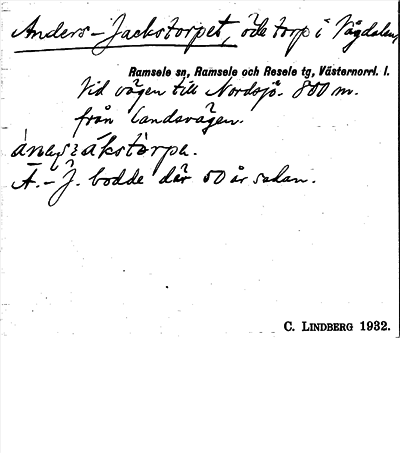 Anders-Jackstorpet, öde torp i Vägdalen,
Ramsele sn, Ramsele och Resele tg, Västernorrl. l.
Vid vägen till Nordsjö. 800 m.
från landsvägen.
A.-J. bodde där 50 år sedan.
C. LINDBERG 1932.